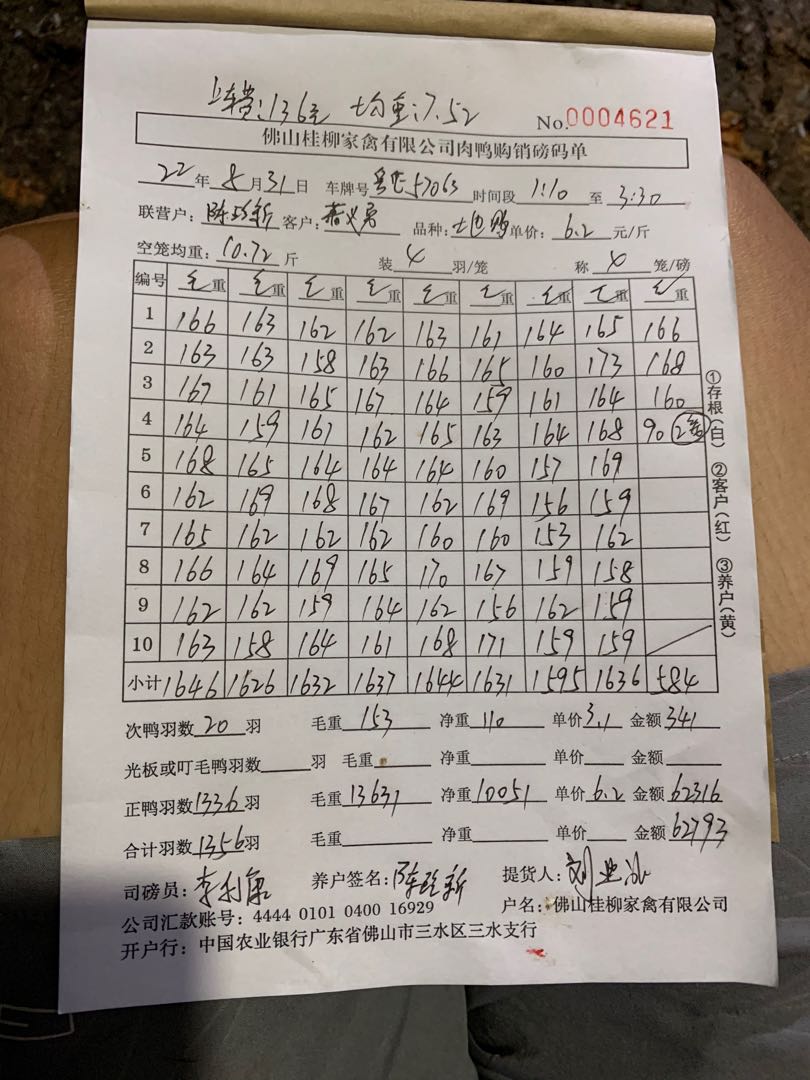 上车费:136元 均重:7.52
No.0004621
佛山桂柳家禽有限公司肉鸭购销磅码单
22年8月31日 车牌号 57063 时间段 1:10 至 3:30
联营户: 陈玲新 客户: 品种: 土迈鸭 单价: 6.2 元/斤
空笼均重: 10.72 斤 装 4 羽/笼 称 4 笼/磅
编号 毛重 毛重 毛重 毛重 毛重 毛重 毛重 毛重 毛重
1 166 163 162 162 163 161 164 165 166
2 163 163 158 163 166 165 160 173 168
3 167 161 165 167 164 159 161 164 160
4 164 159 161 162 165 163 164 168 90 2笼
5 168 165 164 164 164 160 157 169
6 162 169 168 167 162 169 156 159
7 165 162 162 162 160 160 153 162
8 166 164 169 165 170 167 159 158
9 162 162 159 164 162 156 162 159
10 163 158 164 161 168 171 159 159
小计 1646 1626 1632 1637 1644 1631 1595 1636 584
①存根(白) ②客户(红) ③养户(黄)
次鸭羽数 20 羽 毛重 153 净重 110 单价 3.1 金额 341
光板或叮毛鸭羽数 羽 毛重 净重 单价 金额
正鸭羽数 1336 羽 毛重 13631 净重 10051 单价 6.2 金额 62316
合计羽数 1356 羽 毛重 净重 单价 金额 62793
司磅员: 李利康 养户签名: 陈玲新 提货人: 刘业
公司汇款账号: 4444 0101 0400 16929 户名: 佛山桂柳家禽有限公司
开户行: 中国农业银行广东省佛山市三水区三水支行